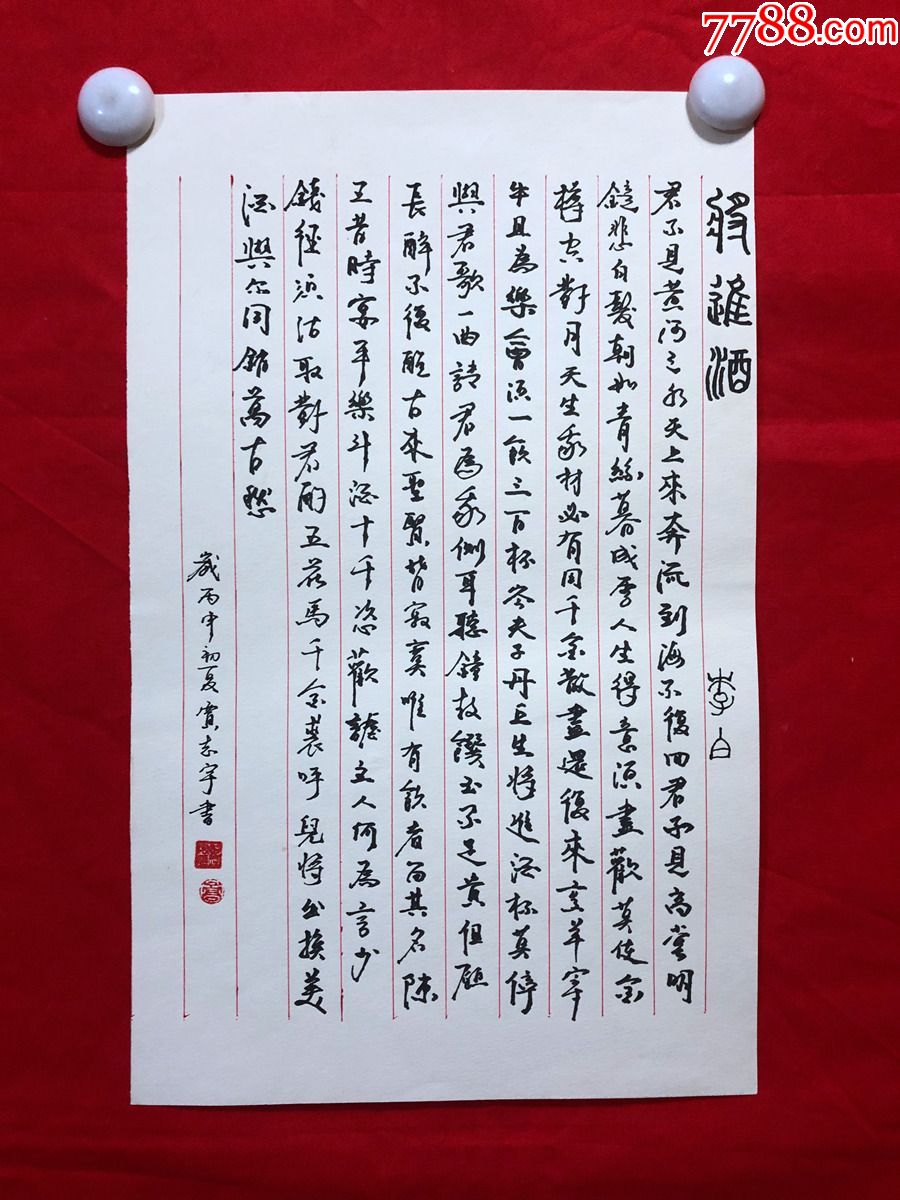 7788.com
將進酒 李白
君不見黃河之水天上來奔流到海不復回君不見高堂明
鏡悲白髮朝如青絲暮成雪人生得意須盡歡莫使金
樽空對月天生我材必有用千金散盡還復來烹羊宰
牛且為樂會須一飲三百杯岑夫子丹丘生將進酒杯莫停
與君歌一曲請君為我側耳聽鐘鼓饌玉不足貴但願
長醉不復醒古來聖賢皆寂寞唯有飲者留其名陳
王昔時宴平樂斗酒十千恣歡謔主人何為言少
錢徑須沽取對君酌五花馬千金裘呼兒將出換美
酒與尔同銷萬古愁
歲丙申初夏志宇書